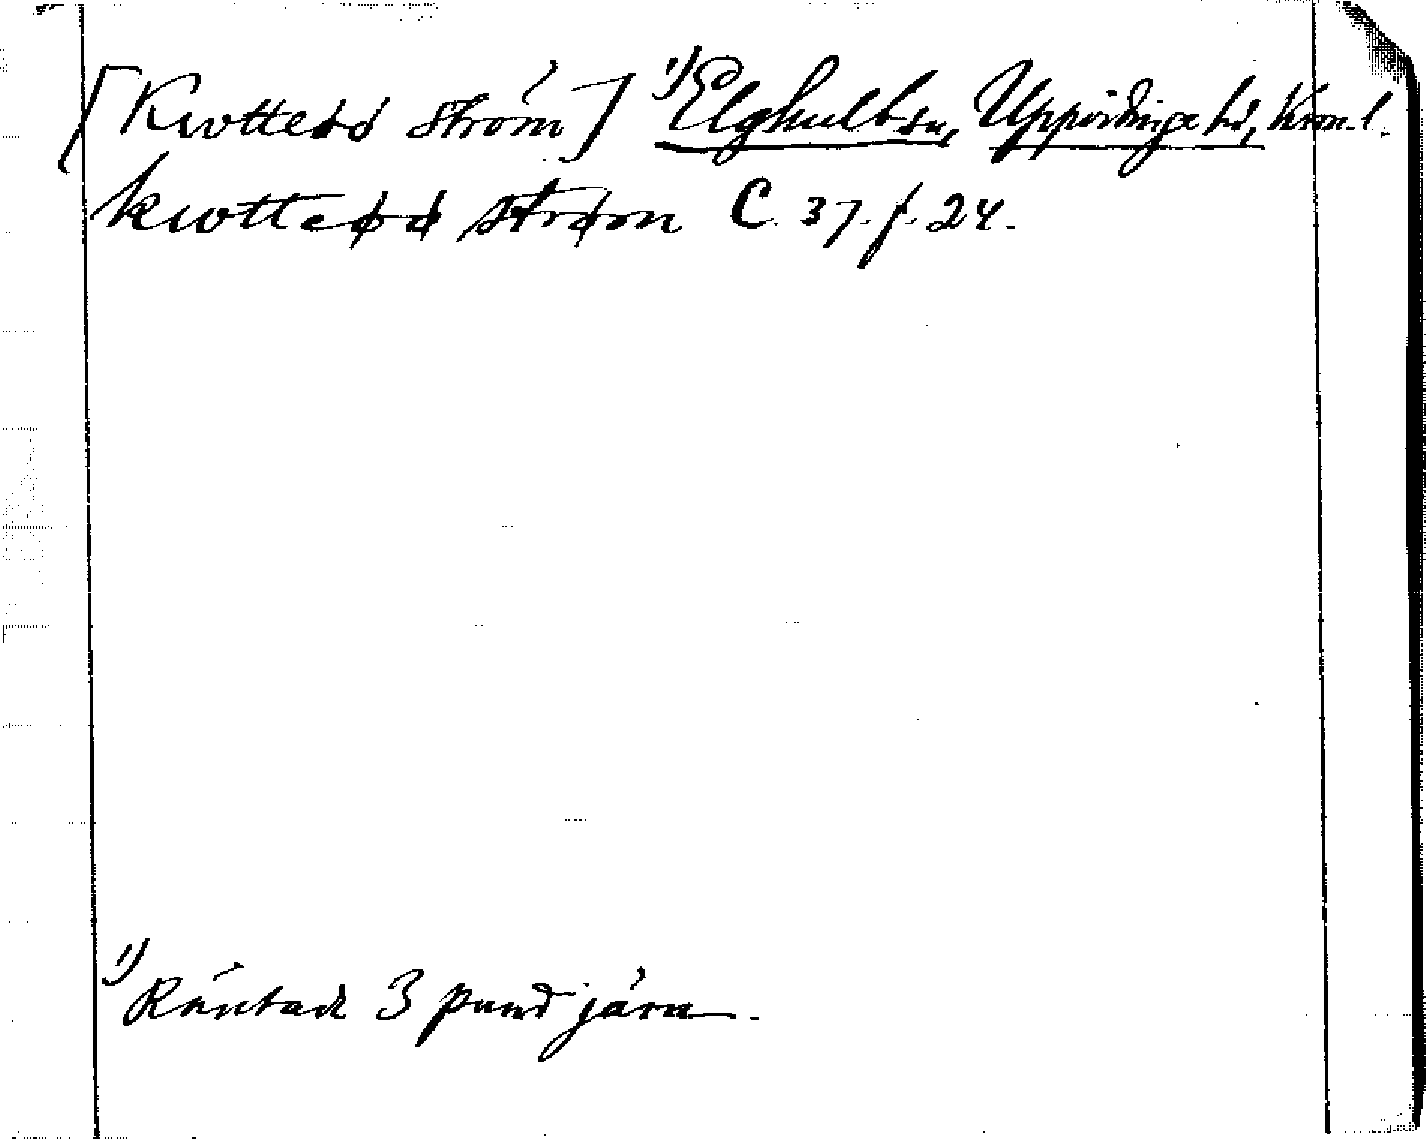 [Kwttesö ström] ¹) Elghults sn, Uppvidinge hd, Kron. l.
kwttesøø strøm C. 37. f. 24.
¹) Räntade 3 pund järn.